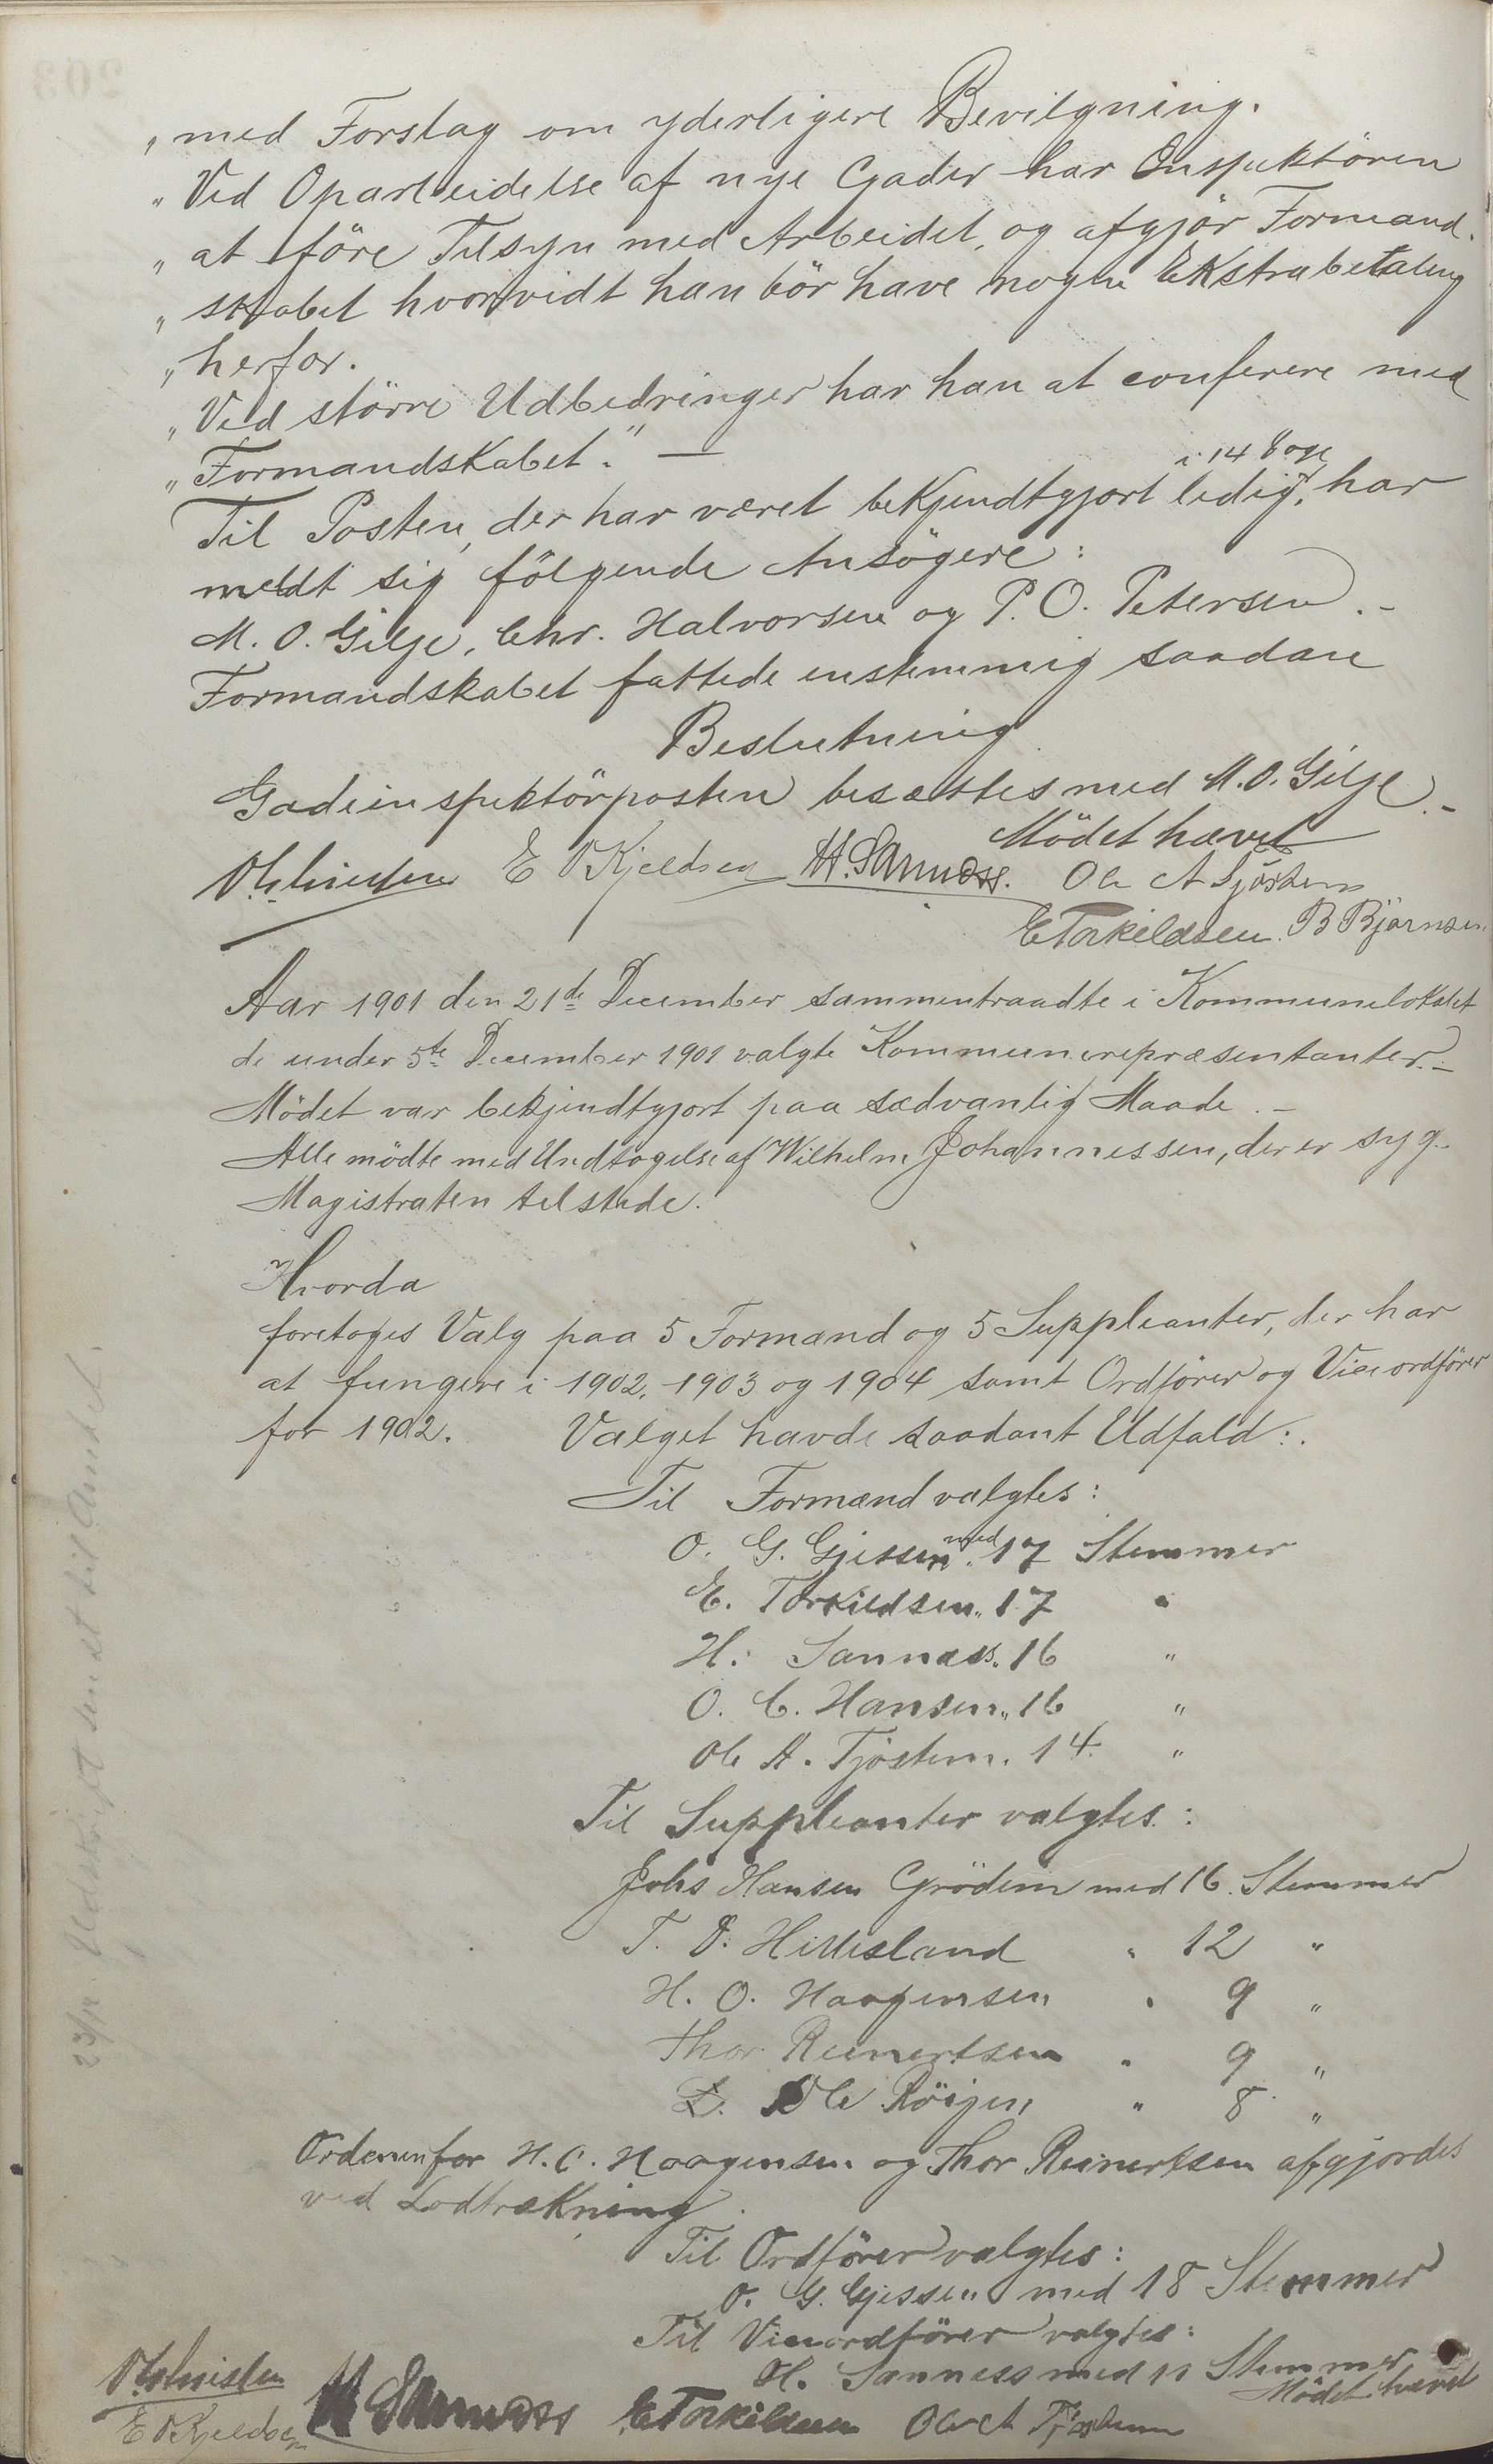 „ med Forslag om yderligere Bevilgning.
„ Ved Oparbeidelse af nye Gader har Inspektören
„ at före Tilsyn med Arbeidet, og afgjör Formand-
„ skabet hvorvidt han bör have nogen Ekstrabetaling
„ herfor.
„ Ved större Udbedringer har han at conferere med
„ Formandskabet". —
i 14 Dage
Til Posten, der har været bekjendtgjort ledig, har
meldt sig fölgende Ansögere:
M. O. Gilje, Chr. Halvorsen og P. O. Petersen. -
Formandskabet fattede enstemmig saadan
Beslutning
Gadeinspektörposten besættes med M. O. Gilje. -
Mödet hævet
E O Kjeldsen H. Sannæss. Ole A Tjöstem
E Torkildsen. B Bjørnsen
Aar 1901 den 21de December sammentraadte i Kommunelokalet
de under 5te December 1901 valgte Kommunerepræsentanter. -
Mödet var bekjendtgjort paa sædvanlig Maade. -
Alle mödte med Undtagelse af Wilhelm Johannessen, der er syg. -
Magistraten tilstede.
Hvorda
foretoges Valg paa 5 Formænd og 5 Suppleanter, der har
at fungere i 1902, 1903 og 1904 samt Ordförer og Viceordförer
for 1902. Valget havde saadant Udfald:.
Til Formænd valgtes:
O. G. Gjessen med 17 Stemmer
E. Torkildsen „ 17 „
H. Sannæss „ 16 „
O. C. Hansen „ 16 „
Ole A. Tjöstem „ 14 „
Til Suppleanter valgtes:
Johs Hansen Grödem med 16 Stemmer
T. D. Hillesland „ 12 „
H. O. Haagensen „ 9 „
Thor Reinertsen „ 9 „
Ole Röijen „ 8 „
Ordenen for H. O. Haagensen og Thor Reinertsen afgjordes
ved Lodtrækning.
Til Ordförer valgtes:
O. G. Gjessen med 18 Stemmer
Til Viceordförer valgtes:
H. Sannæss med 11 Stemmer
Mödet hævet
H Sannæss E Torkildsen Ole A Tjöstem
E O Kjeldsen
23/12 Udskrift sendt til Amtet.